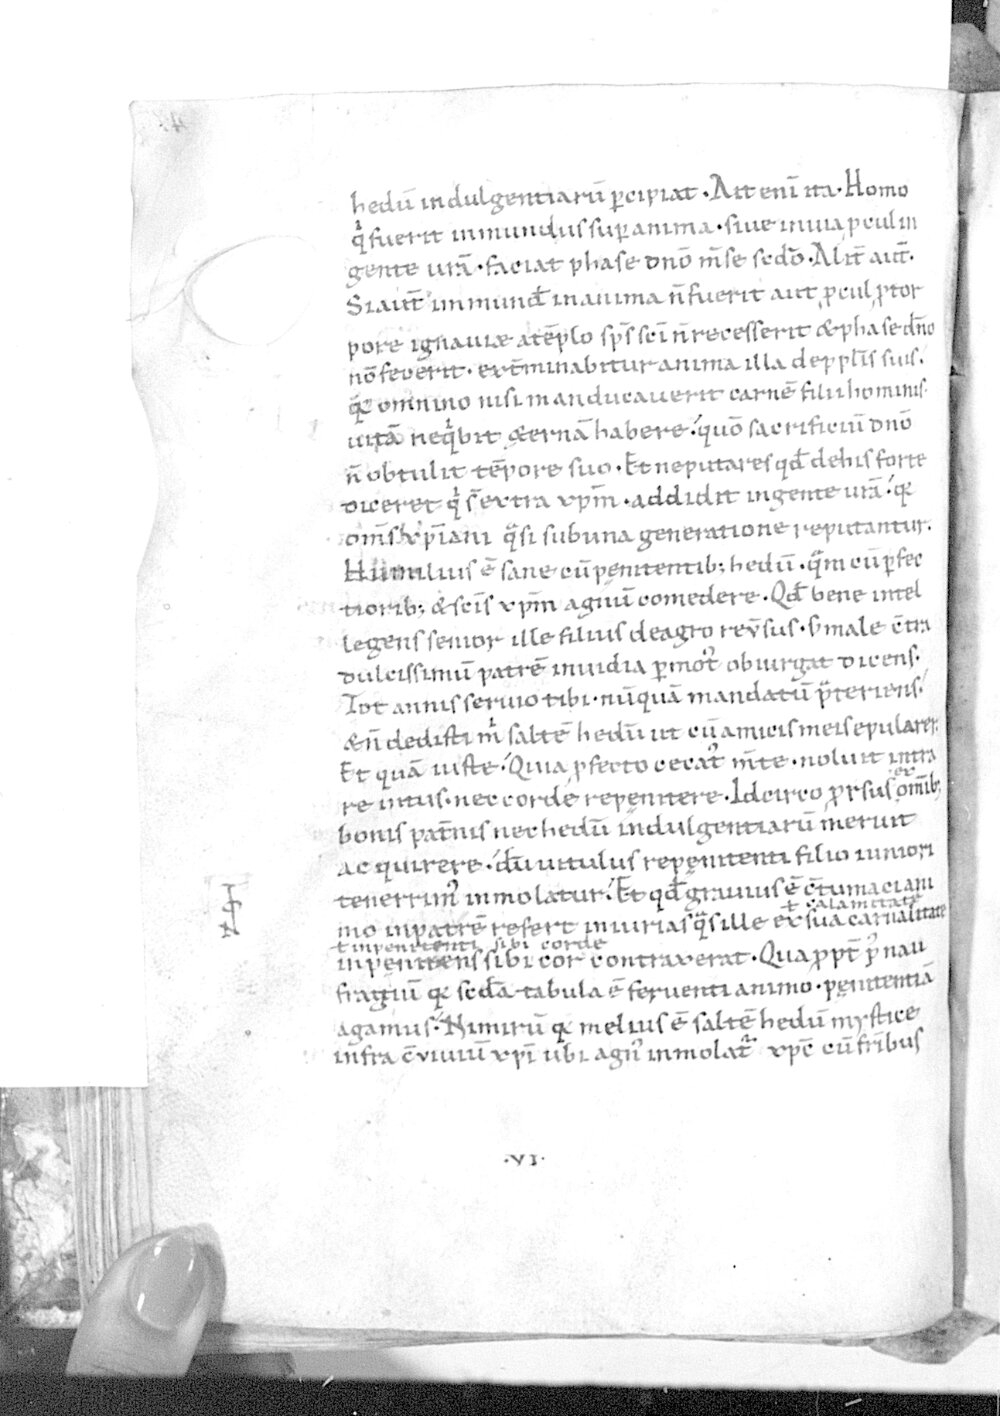 hedū indulgentiarū ꝑcipiat · Ait enī ita · Homo
qͥ fuerit inmundus suꝑ anima · sive in via ꝓcul in
gente vr̄a · faciat phase dn̄o m̄se scd̄o · Alit̄ aut̄ ·
Si aut̄ inmund' in anima n̄ fuerit aut ꝓcul ꝓ tor
pore ignaviæ a tēplo sp̄s sc̄i n̄ recesserit & phase dn̄o
nō fecerit · ext̄minabitur anima illa de ppl̄is suis ·
q̨ omnino nisi manducaverit carnē filii hominis ·
vitā neqͥbit æternā habere · quō sacrificiū dn̄o
n̄ obtulit tēpore suo · Et ne putares qd̄ de his forte
diceret qͥ s̄ extra xp̄m · addidit in gente vr̄a · q̨
om̄s xp̄iani qͣsi sub una generatione reputantur ·
Humilius ē sane cū penitentib; hedū · qͣm cū ꝑfec
tiorib; & sc̄is xp̄m agnū comedere · Qd̄ bene intel
legens senior ille filius de agro rev̄sus · s; male c̄tra
dulcissimū patrē invidia ꝑmot᾽ obiurgat dicens ·
Tot annis servio tibi · nūquā mandatū p̄teriens ·
& n̄ dedisti mͥ saltē hedū ut cū amicis meis epularer ·
Et quā iuste · Quia ꝓfecto cecat᾽ m̄te · noluit intra
re intus · nec corde repenitere · Idcirco ꝓrsus ex om̄ib;
bonis pat̄nis nec hedū indulgentiarū meruit
acquirere · dū vitulus repenitenti filio iuniori
tenerrim᾽ inmolatur · Et qd̄ gravius ē c̄tumaci ani
ł calamitate
mo in patrē refert iniurias qͣs ille ex sua carnalitate
ł inpenitenti sibi corde
inpenitens sibi cor contraxerat · Qua ꝓpt̄ p᾽ nau
fragiū q̨ scd̄a tabula ē ferventi animo · penitentiā
agamus · Nimirū q̨ melius ē saltē hedū mystice
infra c̄viviū xp̄i ubi agn᾽ inmolat᾽ xp̄c cū fribus
· VI ·